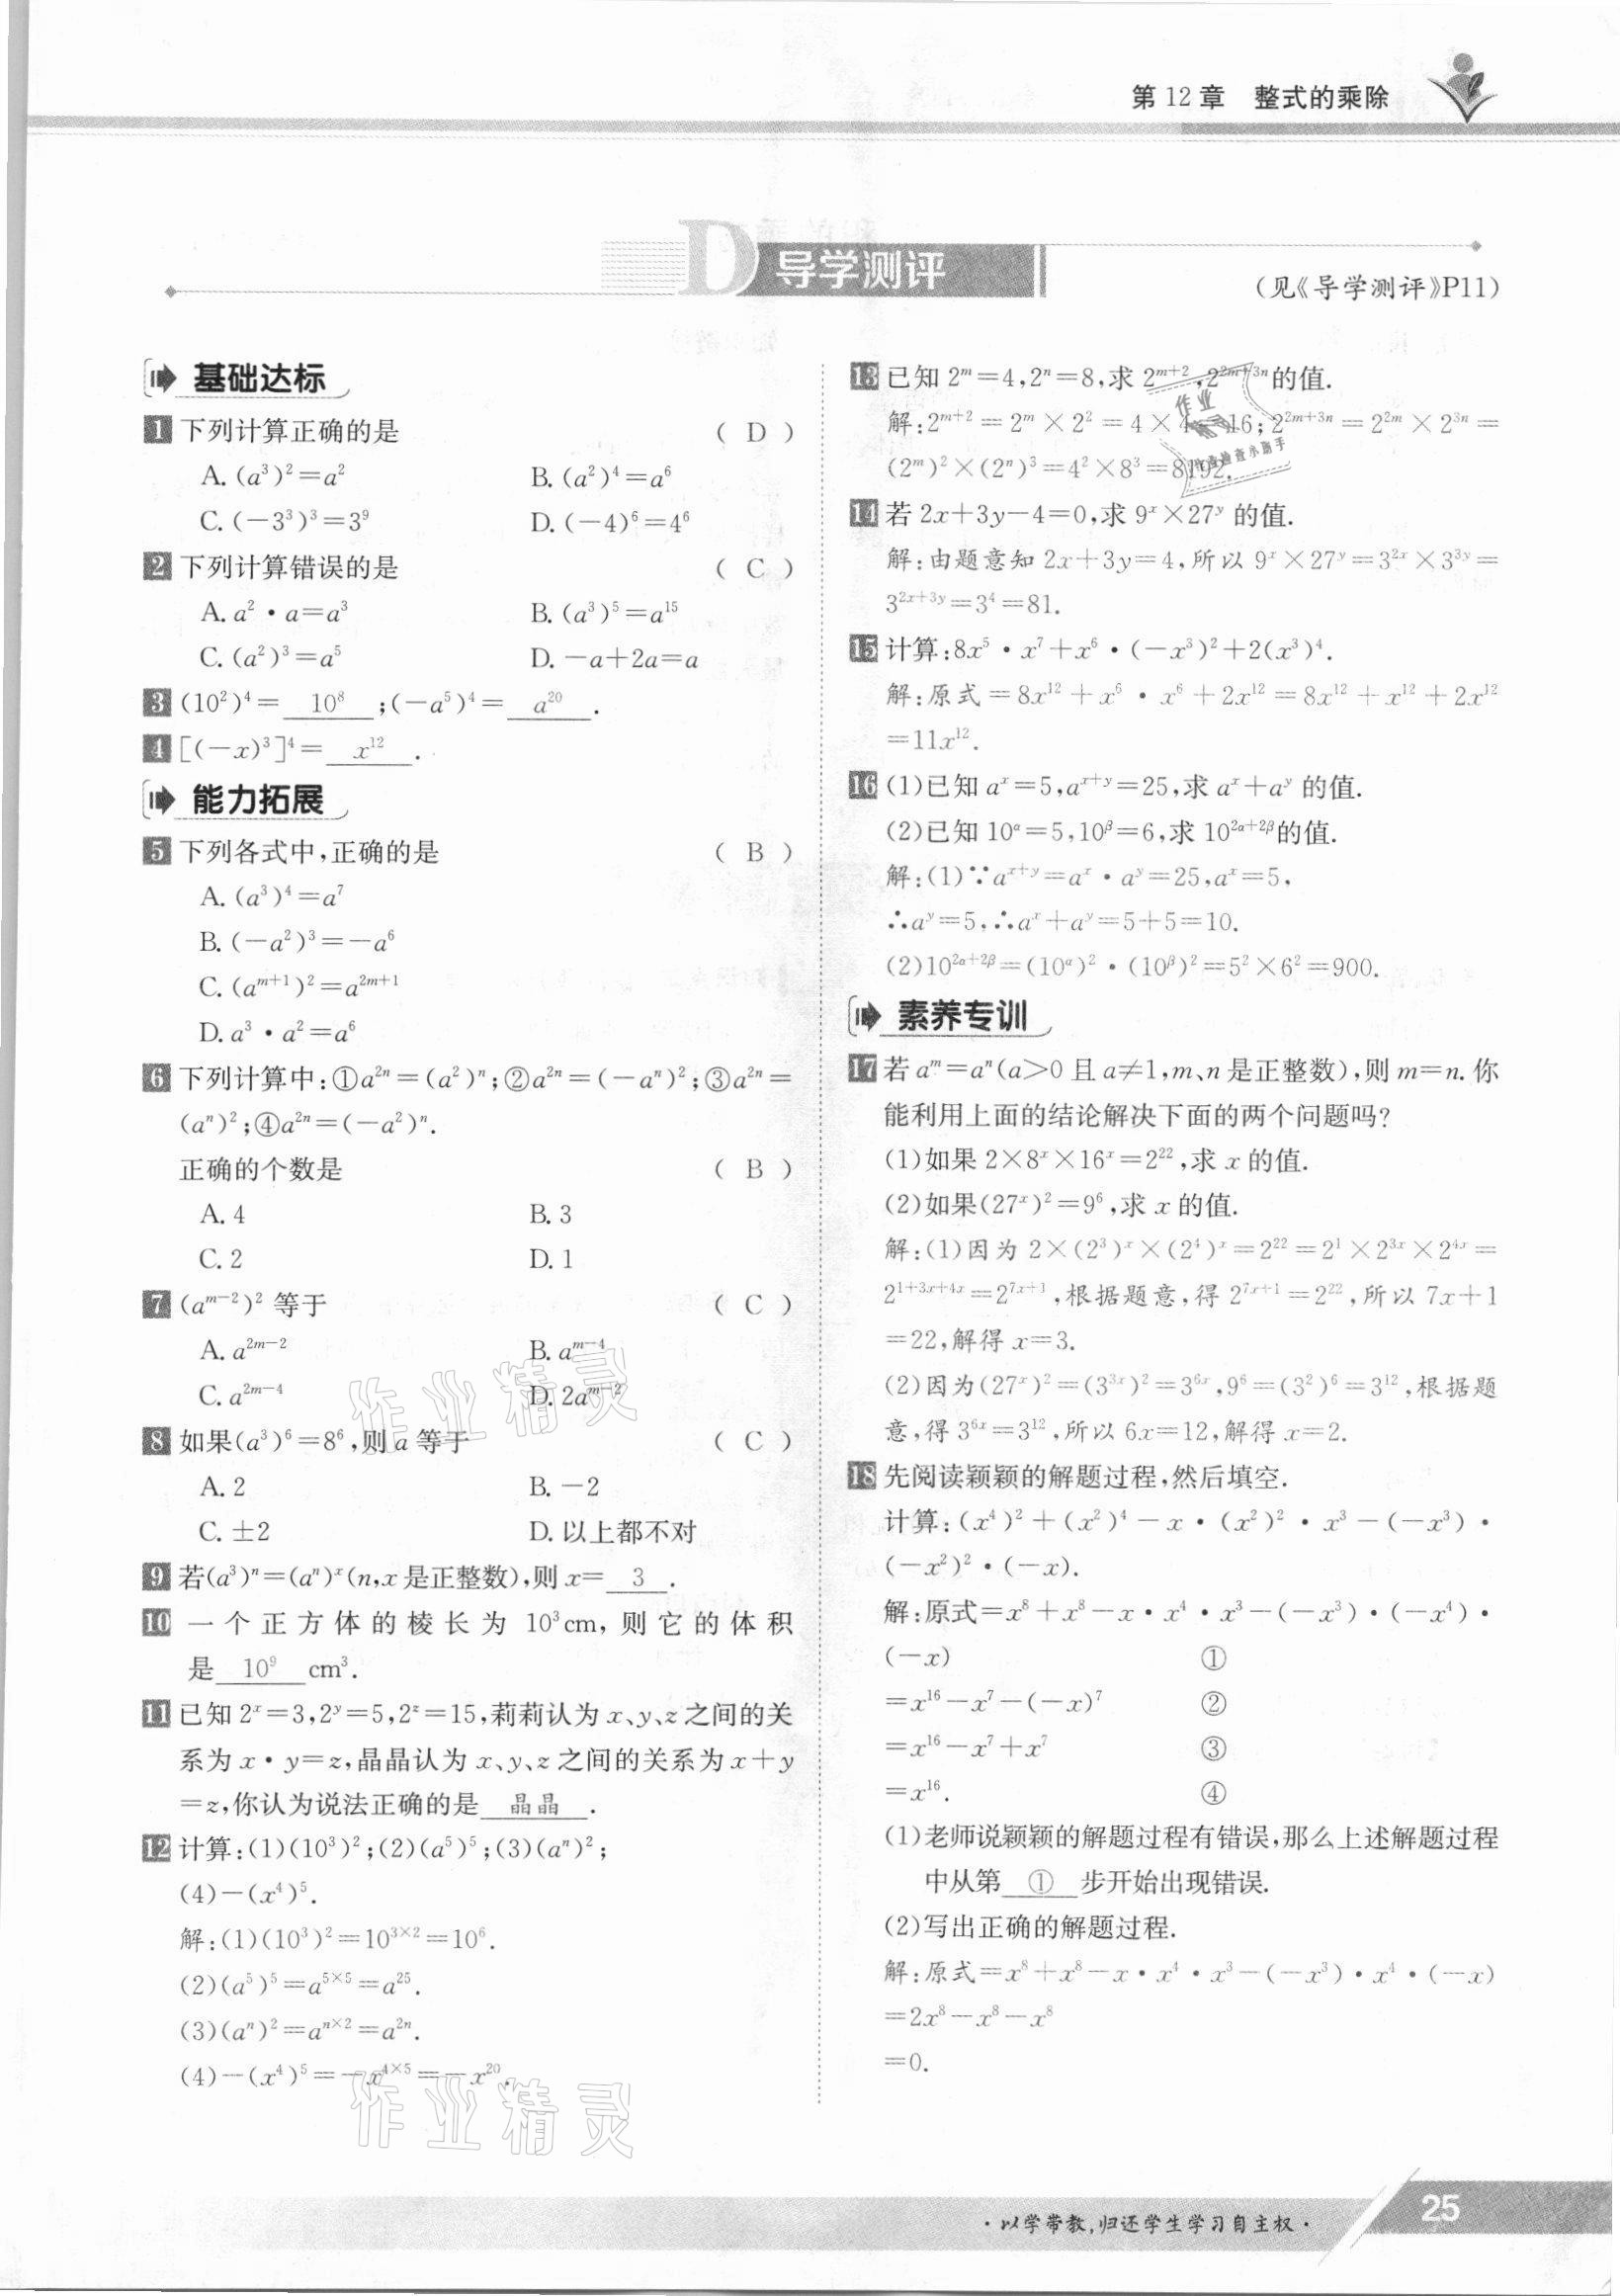 第12章 整式的乘除
D 导学测评
(见《导学测评》P11)
基础达标
1 下列计算正确的是 ( D )
A. (a³)²=a² B. (a²)⁴=a⁶
C. (-3³)³=3⁹ D. (-4)⁶=4⁶
2 下列计算错误的是 ( C )
A. a²·a=a³ B. (a³)⁵=a¹⁵
C. (a²)³=a⁵ D. -a+2a=a
3 (10²)⁴= 10⁸ ;(-a⁵)⁴= a²⁰ .
4 [(-x)³]⁴= x¹² .
能力拓展
5 下列各式中,正确的是 ( B )
A. (a³)⁴=a⁷
B. (-a²)³=-a⁶
C. (a^{m+1})²=a^{2m+1}
D. a³·a²=a⁶
6 下列计算中:①a^{2n}=(a²)^n;②a^{2n}=(-a^n)²;③a^{2n}=
(a^n)²;④a^{2n}=(-a²)^n.
正确的个数是 ( B )
A. 4 B. 3
C. 2 D. 1
7 (a^{m-2})² 等于 ( C )
A. a^{2m-2} B. a^{m-4}
C. a^{2m-4} D. 2a^{m-2}
8 如果(a³)⁶=8⁶,则 a 等于 ( C )
A. 2 B. -2
C. ±2 D. 以上都不对
9 若(a³)^n=(a^n)^x(n,x 是正整数),则 x= 3 .
10 一个正方体的棱长为 10³cm,则它的体积
是 10⁹ cm³.
11 已知 2^x=3,2^y=5,2^z=15,莉莉认为 x、y、z 之间的关
系为 x·y=z,晶晶认为 x、y、z 之间的关系为 x+y
=z,你认为说法正确的是 晶晶 .
12 计算:(1)(10³)²;(2)(a⁵)⁵;(3)(a^n)²;
(4)-(x⁴)⁵.
解:(1)(10³)²=10^{3×2}=10⁶.
(2)(a⁵)⁵=a^{5×5}=a²⁵.
(3)(a^n)²=a^{n×2}=a^{2n}.
(4)-(x⁴)⁵=-x^{4×5}=-x²⁰.
13 已知 2^m=4,2^n=8,求 2^{m+2},2^{2m+3n}的值.
解:2^{m+2}=2^m×2²=4×4=16;2^{2m+3n}=2^{2m}×2^{3n}=
(2^m)²×(2^n)³=4²×8³=8192.
14 若 2x+3y-4=0,求 9^x×27^y 的值.
解:由题意知 2x+3y=4,所以 9^x×27^y=3^{2x}×3^{3y}=
3^{2x+3y}=3⁴=81.
15 计算:8x⁵·x⁷+x⁶·(-x³)²+2(x³)⁴.
解:原式=8x¹²+x⁶·x⁶+2x¹²=8x¹²+x¹²+2x¹²
=11x¹².
16 (1)已知 a^x=5,a^{x+y}=25,求 a^x+a^y 的值.
(2)已知 10^α=5,10^β=6,求 10^{2α+2β}的值.
解:(1)∵a^{x+y}=a^x·a^y=25,a^x=5,
∴a^y=5,∴a^x+a^y=5+5=10.
(2)10^{2α+2β}=(10^α)²·(10^β)²=5²×6²=900.
素养专训
17 若 a^m=a^n(a>0 且 a≠1,m、n 是正整数),则 m=n. 你
能利用上面的结论解决下面的两个问题吗?
(1)如果 2×8^x×16^x=2²²,求 x 的值.
(2)如果(27^x)²=9⁶,求 x 的值.
解:(1)因为 2×(2³)^x×(2⁴)^x=2²²=2¹×2^{3x}×2^{4x}=
2^{1+3x+4x}=2^{7x+1},根据题意,得 2^{7x+1}=2²²,所以 7x+1
=22,解得 x=3.
(2)因为(27^x)²=(3^{3x})²=3^{6x},9⁶=(3²)⁶=3¹²,根据题
意,得 3^{6x}=3¹²,所以 6x=12,解得 x=2.
18 先阅读颖颖的解题过程,然后填空.
计算:(x⁴)²+(x²)⁴-x·(x²)²·x³-(-x³)·
(-x²)²·(-x).
解:原式=x⁸+x⁸-x·x⁴·x³-(-x³)·(-x⁴)·
(-x) ①
=x¹⁶-x⁷-(-x)⁷ ②
=x¹⁶-x⁷+x⁷ ③
=x¹⁶. ④
(1)老师说颖颖的解题过程有错误,那么上述解题过程
中从第 ① 步开始出现错误.
(2)写出正确的解题过程.
解:原式=x⁸+x⁸-x·x⁴·x³-(-x³)·x⁴·(-x)
=2x⁸-x⁸-x⁸
=0.
作业精灵
作业精灵
作业
·以学带教,归还学生学习自主权·
25